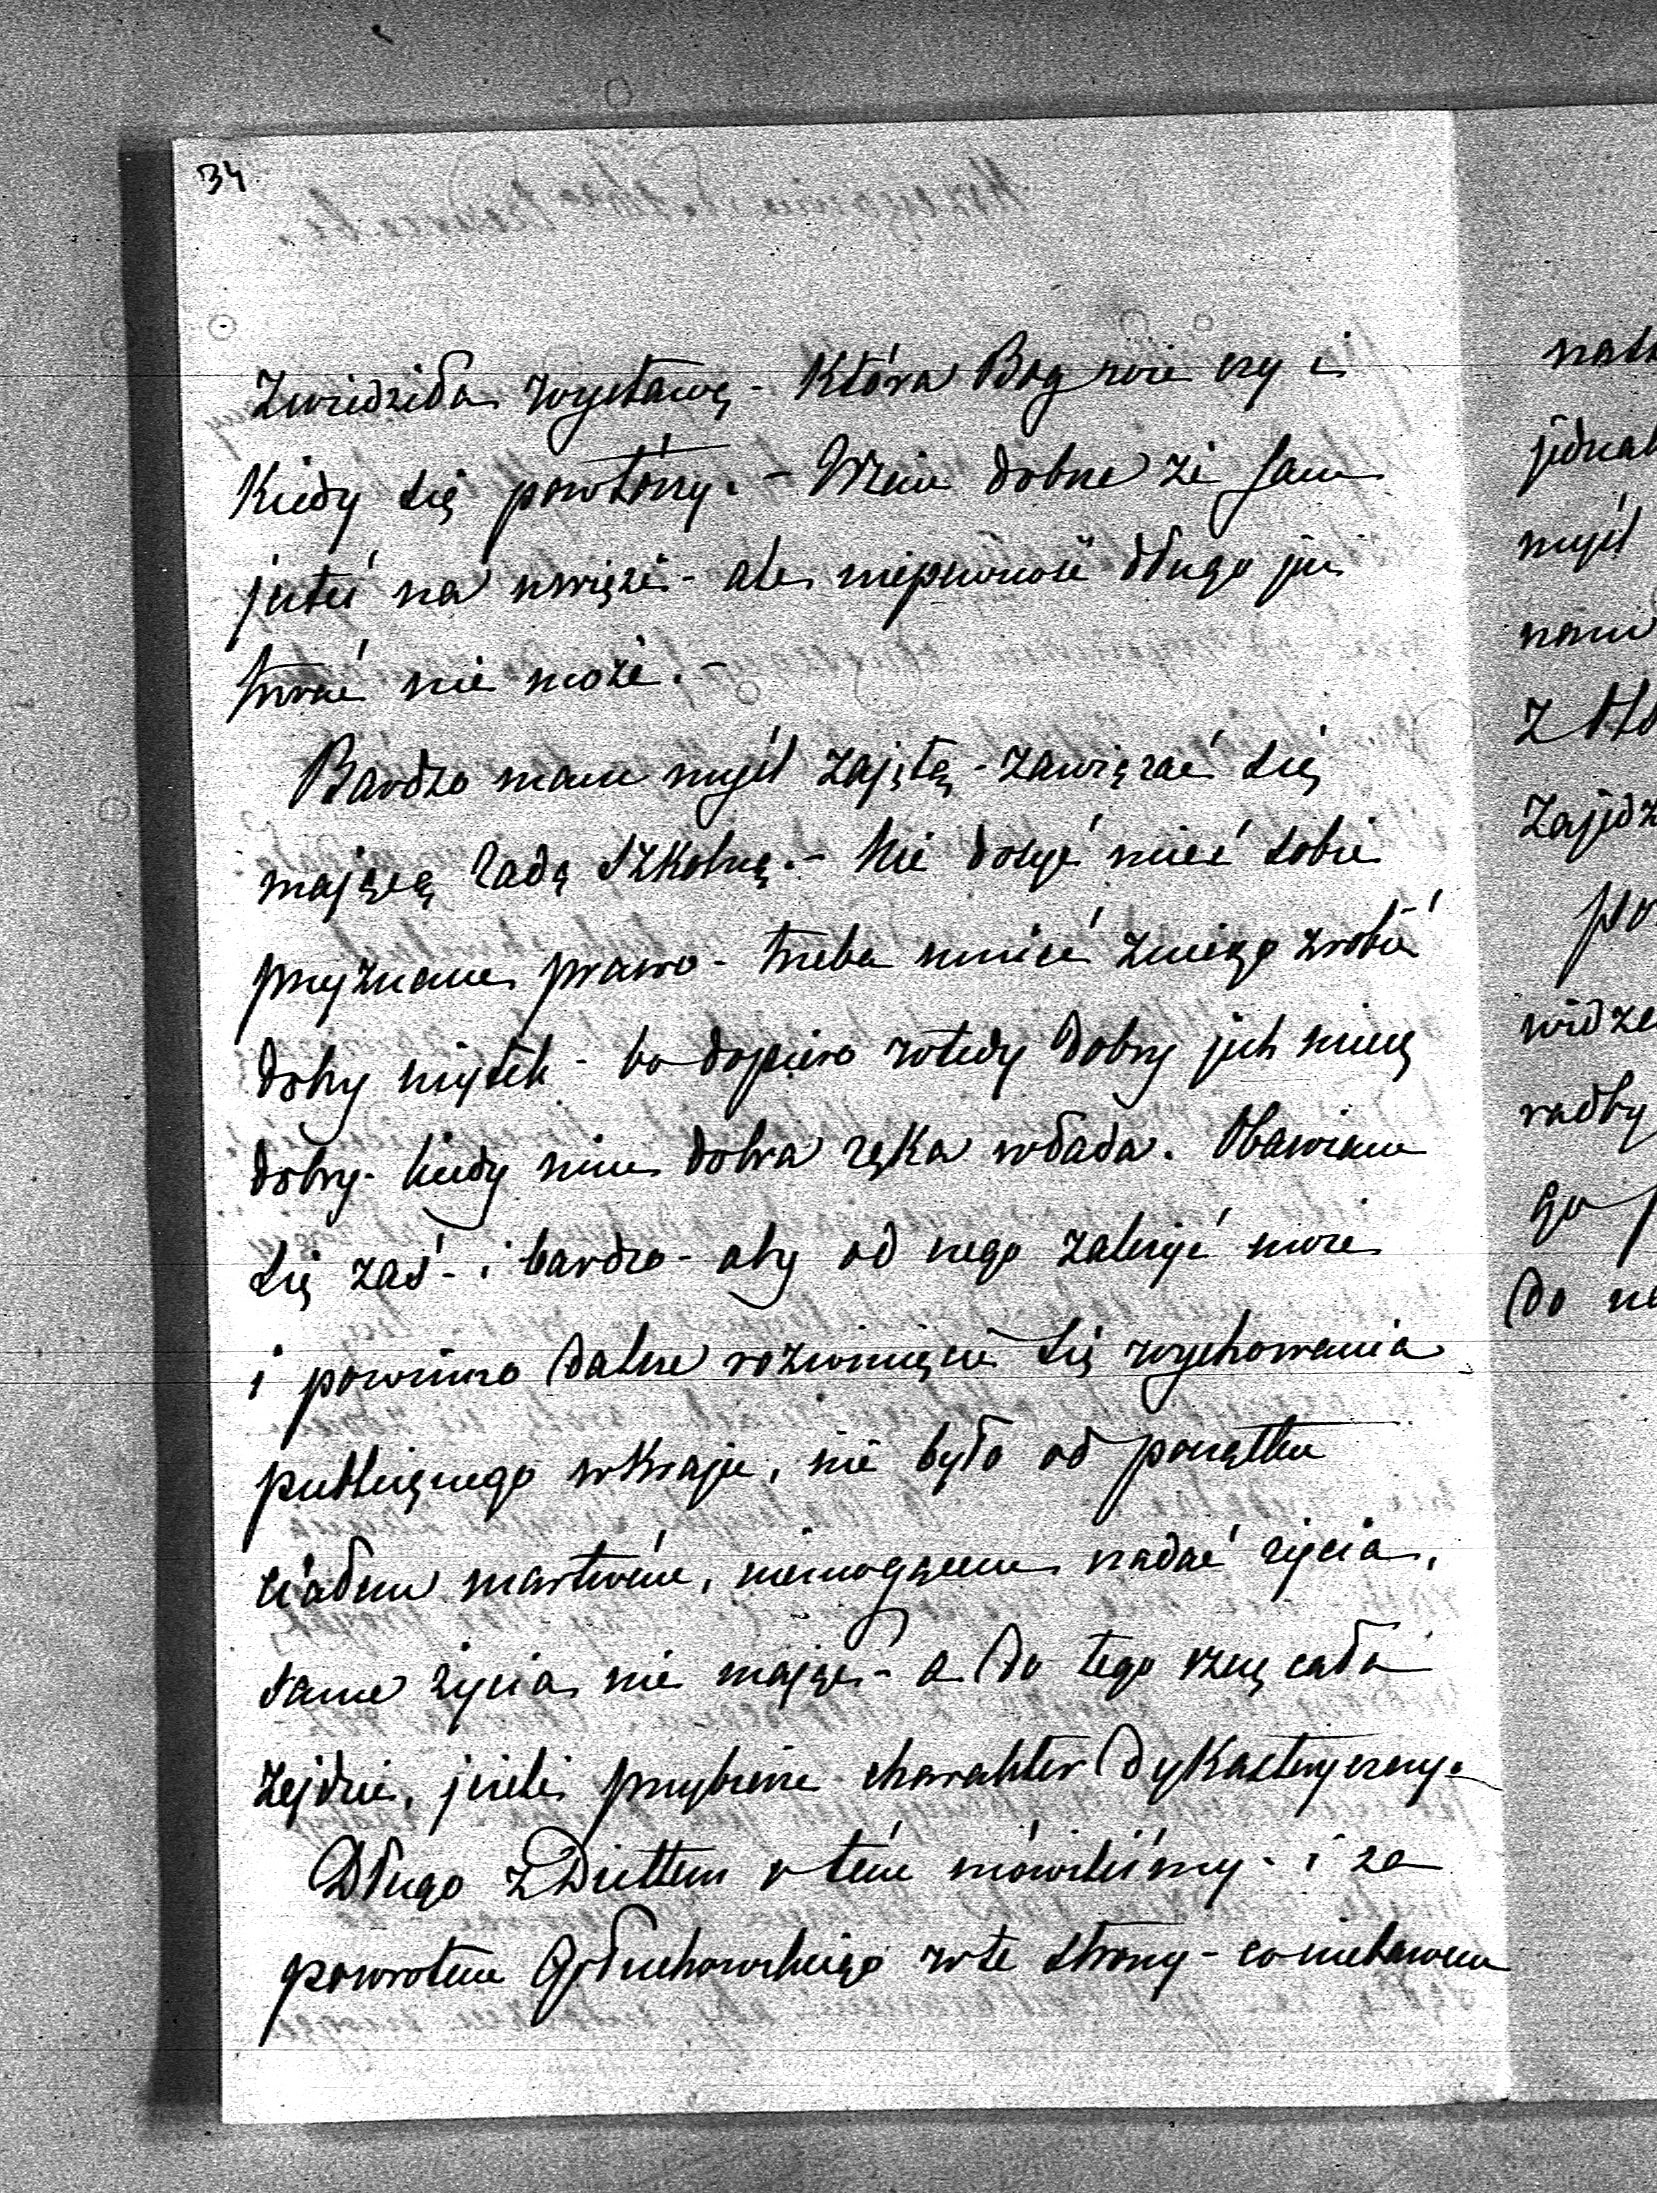 34
Zwiedziła wystawę - Która Bog wie czy i
Kiedy się powtórzy. - Wiem dobrze że Sam
jesteś na uwięzi - ale niepewność długo już
trwać nie może. -
Bardzo mam myśl zajętą - zawiązać się
mającą Radą Szkolną. - Nie dosyć mieć sobie
przyznane prawo - trzeba umieć zniego zrobić
dobry użytek - bo dopiero wtedy dobry jest miecz
dobry - kiedy nim dobra ręka włada. Obawiam
się zaś - i bardzo - aby od czego zależyć może
i powinno dalsze rozwinięcie się wychowania
publicznego w Kraju, nie było od początku
ciałem martwém, niemogącem nadać życia,
same życia nie mając - a do tego rzecz cała
zejdzie, jeżeli przybierze charakter dykasteryczny.
Długo z Dietlem o tém mówiliśmy - i za
powrotem Gołuchowskiego w te strony - co niebawem
nasz
jednak
myśl
z
Zajdz
po
widze
radby
go
do